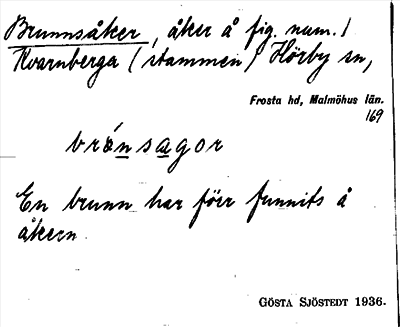 Brunnsåker, åker å fig. num. 1
Kvarnberga (stammen) Hörby sn,
Frosta hd, Malmöhus län.
169
brónsagor
En brunn har förr funnits å
åkern
GÖSTA SJÖSTEDT 1936.